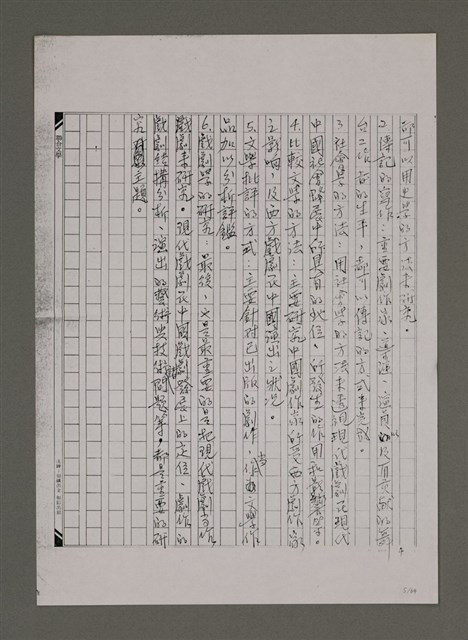 都可以用史學的方法來研究。
2.傳記的寫作:重要劇作家、導演、演員以及有貢獻的舞
台工作者的生平,都可以傳記的方式來完成。
3.社會學的方法:用社會學的方法來透視現代戲劇在現代
中國社會發展中所具有的地位、所發生的作用和影響等。
4.比較文學的方法:主要研究中國劇作家所受西方劇作家
之影響,及西方戲劇在中國演出之狀況。
5.文學批評的方式:主要針對已出版的劇作,當做文學作
品加以分析評鑑。
6.戲劇學的研究:最後,也是最重要的是把現代戲劇當作
戲劇來研究。現代戲劇在中國戲劇發展上的定位、劇作的
戲劇結構分析、演出的藝術與技術問題等,都是重要的研
究主題。
聯合文學